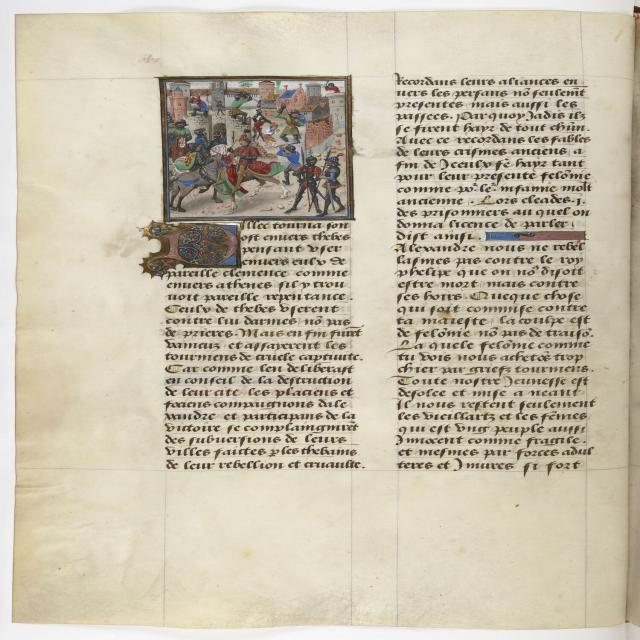 illec tourna son
ost envers thebes
pensant user
envers eulx de
pareille clemence comme
envers athenes sil y trou
voit pareille repentance.
Ceulx de thebes userent
contre lui darmes nõ pas
de prieres. Mais en fin furẽt
vaincuz et assaierent les
tourmens de cruele captiuite.
Car comme len deliberast
en conseil de la destruction
de leur cite, les placiens et
fociens compaignons dale
xandre et participans de la
victoire se complaingnirẽt
des subuersions de leurs
villes faictes p les thebains
de leur rebellion et cruaulte.
Recordans leurs aliances en
uers les persans nõ seulemt
presentes mais aussi les
passees. Parquoy Jadis ilz
se firent hayr de tout chũn.
Auec ce recordans les fables
de leurs crismes anciens a
fin de Iceulx fẽ hayr tant
pour leur presente felõnie
comme po&#x27;r le&#x27; infamie molt
ancienne. Lors cleades .i.
des prisonniers au quel on
donna licence de parler
dist ainsi.
Alexandre nous ne rebel
lasmes pas contre le roy
phelipe que on no&#x27; disoit
estre mort mais contre
ses hoirs. Quelque chose
qui soit commise contre
ta maieste, la coulpe est
de felõnie nõ pas de traisõ.
La quele felõnie comme
tu vois nous achetõs trop
chier par griefz tourmens.
Toute nostre Jeunesse est
desolee et mise a neant
Il nous restent seulement
les vieillartz et les fẽmes
qui est vng peuple aussi
Innocent comme fragile.
et mesmes par forces adul
teres et Iniures si fort